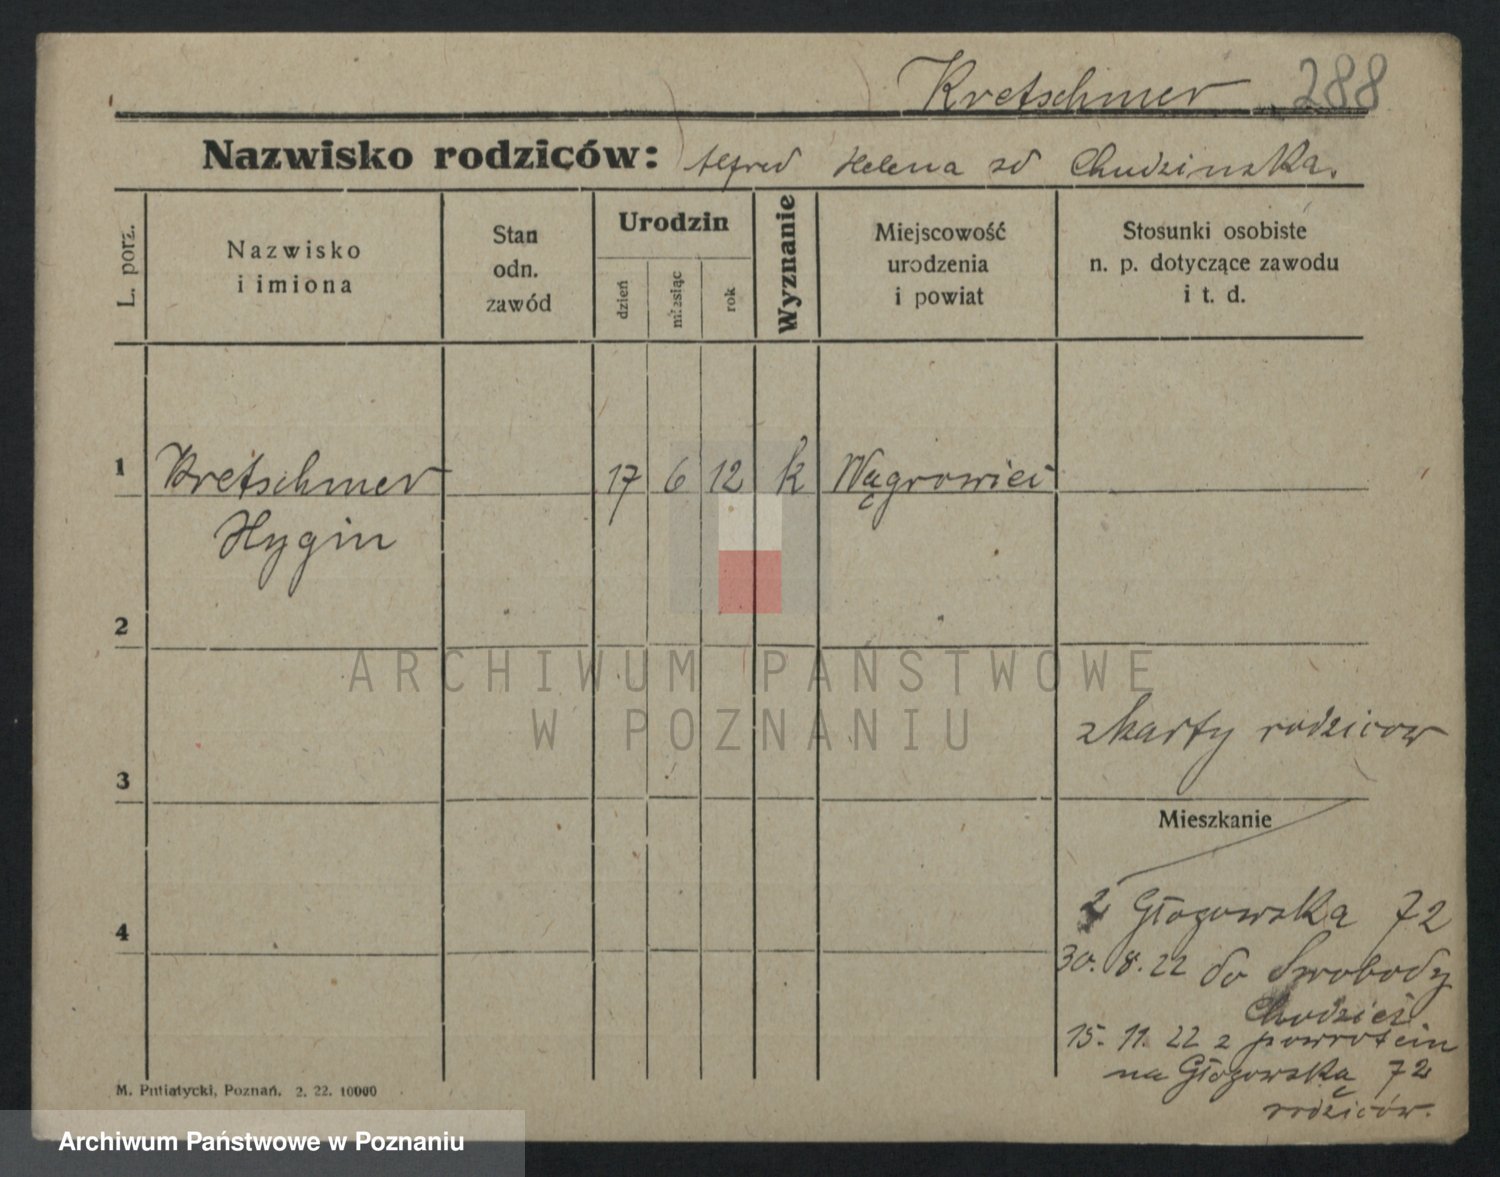 Kretschmer 288
Nazwisko rodziców: Alfred Helena zd Chudzinska.
L. porz.
Nazwisko
i imiona
Stan
odn.
zawód
Urodzin
dzień
miesiąc
rok
Wyznanie
Miejscowość
urodzenia
i powiat
Stosunki osobiste
n. p. dotyczące zawodu
i t. d.
1 Kretschmer 17 6 12 k Wągrowiec
Hygin
2
z karty rodzicow
3
Mieszkanie
4
Głogowska 72
30. 8. 22 do Swobody
Chodzież
15. 11. 22 z powrotem
na Głogowską 72
rodziców.
M. Putiatycki, Poznań. 2. 22. 10000
ARCHIWUM PAŃSTWOWE
W POZNANIU
Archiwum Państwowe w Poznaniu